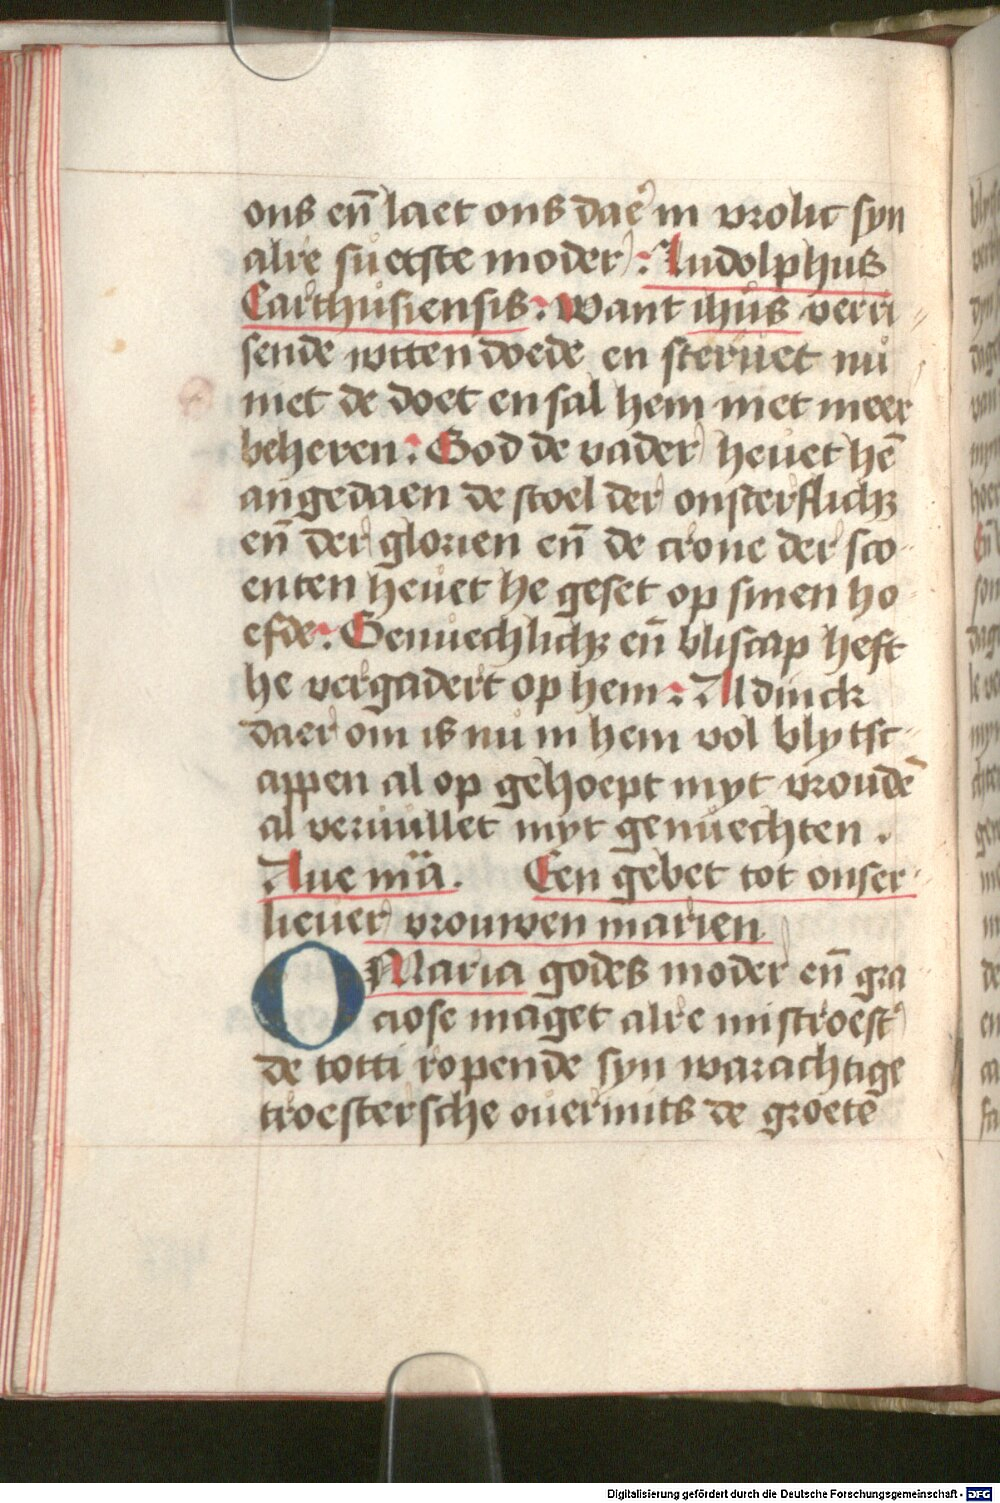 ons en̄ laet ons dae᷒ in vrolic syn
alre suetste moder : Ludolphus
Carthusiensis : Want ihūs verri
sende witten doede en steruet nu
niet de doet en sal hem niet meer
beheren : God de vader heuet hē
angedaen de stoel der onsterflichꝫ
en̄ der glorien en̄ de crone der sco
enten heuet he geset op sinen ho
efde : Genuechlichꝫ en̄ bliscap heft
he vergadert op hem : Al dinck
daer om is nu in hem vol blytsc
appen al op gehoept myt vroudē
al veruullet myt genuechten .
Aue mā . Een gebet tot onser
lieuer vrouwen marien
O Maria godes moder en̄ gra
ciose maget alre mistroest
de totti ropende syn warachtige
troestersche ouermits de groetē
Digitalisierung gefördert durch die Deutsche Forschungsgemeinschaft - DFG